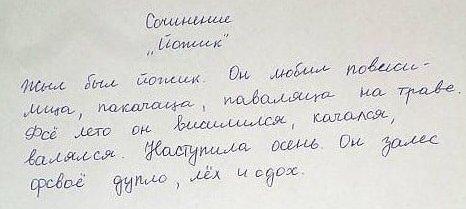 Сочинение
„Йожик"
Жыл был йожик. Он любил повесили-
лица, пакачаца, паваляца на траве.
Фсё лето он висилился, качался,
валялся. Наступила осень. Он залес
фсваё дупло, лёх и здох.